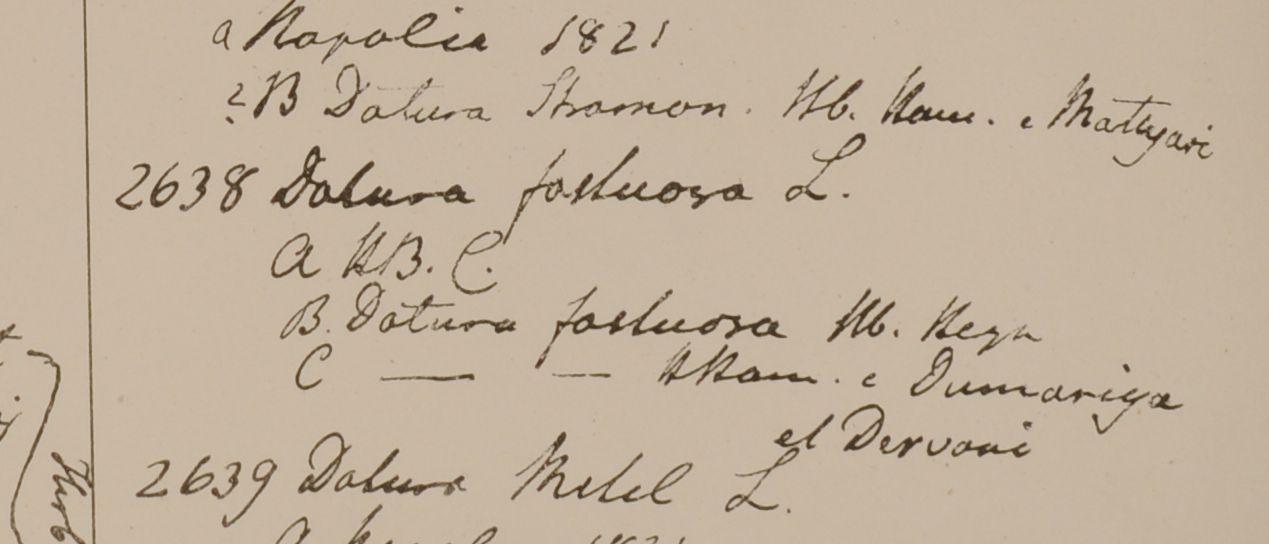 a Napalia 1821
? B Datura Stramon. Hb. Ham. e Mattyari
2638 Datura fastuosa L.
A HB. C.
B. Datura fastuosa Hb. Heyn
C — — HHam. e Dumariya
et Dervani
2639 Datura Metel L.
1821
Hb